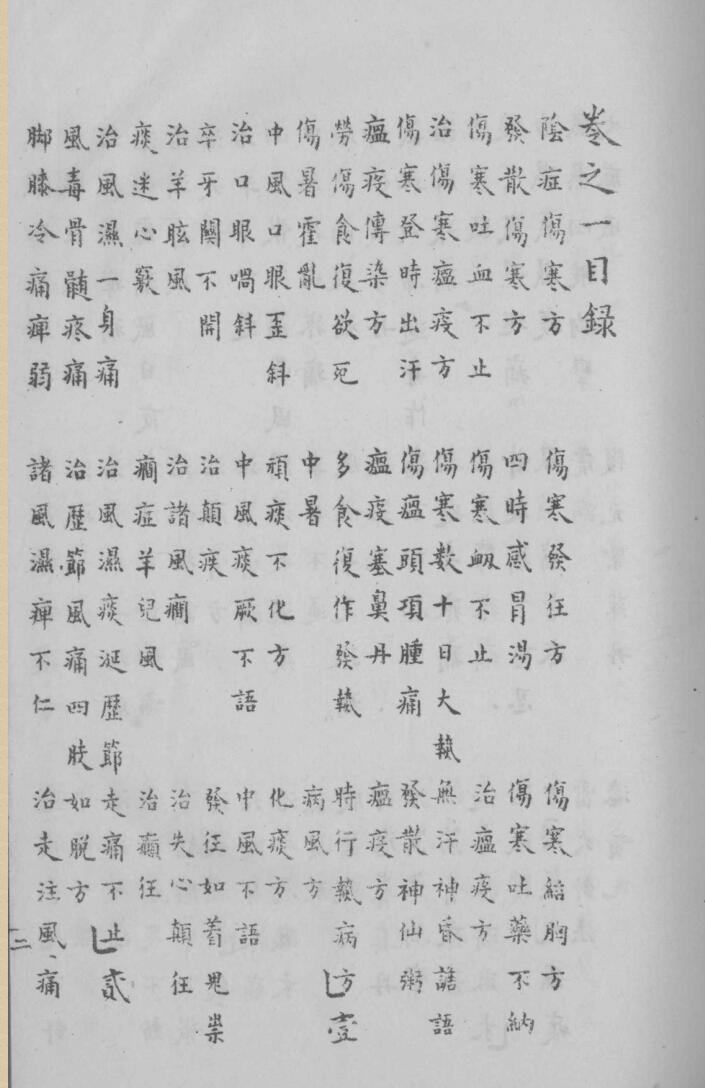 卷之一目録
陰症傷寒方　傷寒發狂方　傷寒結胸方
發散傷寒方　四時感冒湯　傷寒吐藥不納
傷寒吐血不止　傷寒衂不止　治瘟疫方
治傷寒瘟疫方　傷寒数十日大熱　無汗神昏譫語
傷寒登時出汗　傷瘟頭項腫痛　發散神仙粥
瘟疫傳染方　瘟疫塞鼻丹　瘟疫方
勞傷食復欲死　多食復作發熱　時行熱病方　壹
傷暑霍亂　中暑　病風方
中風口眼歪斜　頑痰不化方　化痰方
治口眼喎斜　中風痰厥不語　中風不語
卒牙關不開　治顛疾　發狂如着鬼祟
治羊眩風　治諸風癇　治失心顛狂
痰迷心竅　癇症羊兒風　治癲狂
治風濕一身痛　治風濕痰涎歷節走痛不止　貳
風毒骨髓疼痛　治歷節風痛四肢如脱方
脚膝冷痛痺弱　諸風濕痺不仁　治走注風痛
二